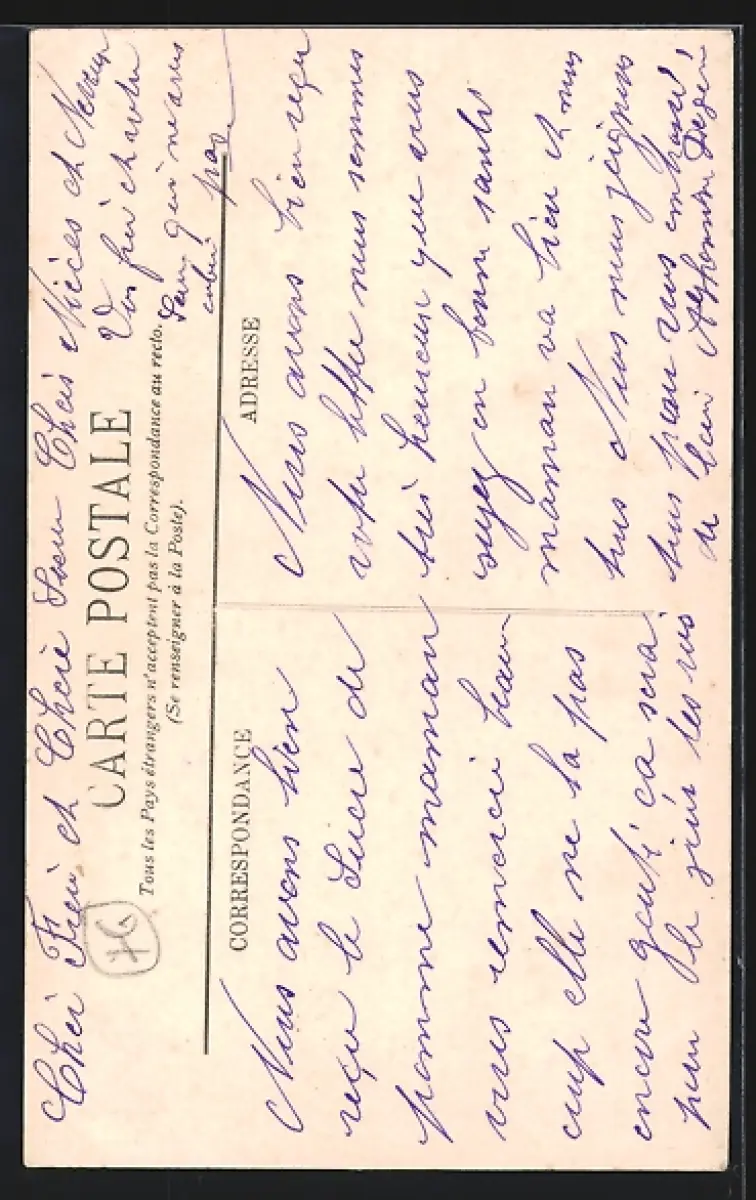 Cher Frère et Chere Soeur Cheis Nièces et Neveux
CARTE POSTALE
Tous les Pays étrangers n'acceptent pas la Correspondance au recto.
(Se renseigner à la Poste).
CORRESPONDANCE
ADRESSE
Nous avons bien
reçu le Sucre de
pomme maman
vous remercie beau
coup elle ne la pas
encore gouté ça sera
pour le jour les rois
Nous avons bien reçu
votre lettre nous sommes
très heureux que vous
soyez en bonne santé
maman va bien et nous
tous Nous nous joignons
tous pour vous embrasser
de loin
Votre frère
Soeur qui ne vous
oublie pas